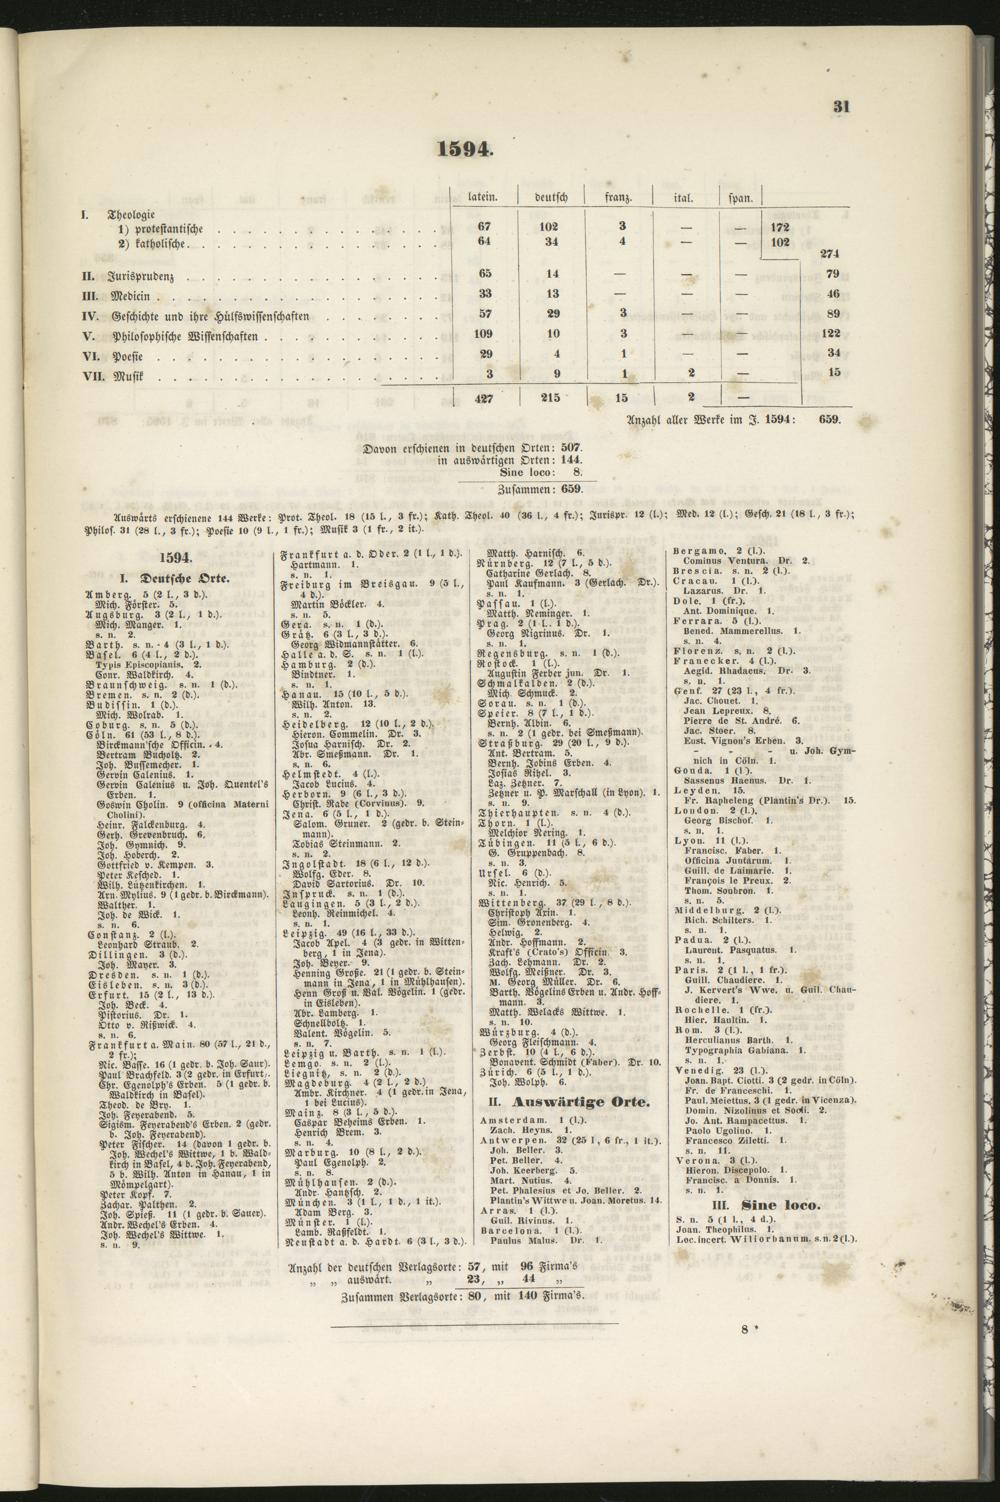 31
1594.
latein. deutsch franz. ital. span.
I. Theologie
1) protestantische 67 102 3 — — 172
2) katholische 64 34 4 — — 102
274
II. Jurisprudenz 65 14 — — — 79
III. Medicin 33 13 — — — 46
IV. Geschichte und ihre Hülfswissenschaften 57 29 3 — — 89
V. Philosophische Wissenschaften 109 10 3 — — 122
VI. Poesie 29 4 1 — — 34
VII. Musik 3 9 1 2 — 15
427 215 15 2 —
Anzahl aller Werke im J. 1594: 659.
Davon erschienen in deutschen Orten: 507.
in auswärtigen Orten: 144.
Sine loco: 8.
Zusammen: 659.
Auswärts erschienene 144 Werke: Prot. Theol. 18 (15 l., 3 fr.); Kath. Theol. 40 (36 l., 4 fr.); Jurispr. 12 (l.); Med. 12 (l.); Gesch. 21 (18 l., 3 fr.);
Philos. 31 (28 l., 3 fr.); Poesie 10 (9 l., 1 fr.); Musik 3 (1 fr., 2 it.).
1594.
I. Deutsche Orte.
Amberg. 5 (2 l., 3 d.).
Mich. Förster. 5.
Augsburg. 3 (2 l., 1 d.).
Mich. Manger. 1.
s. n. 2.
Barth. s. n. 4 (3 l., 1 d.).
Basel. 6 (4 l., 2 d.).
Typis Episcopianis. 2.
Conr. Waldkirch. 4.
Braunschweig. s. n. 1 (d.).
Bremen. s. n. 2 (d.).
Budissin. 1 (d.).
Mich. Wolrab. 1.
Coburg. s. n. 5 (d.).
Cöln. 61 (53 l., 8 d.).
Birckmann'sche Officin. 4.
Bertram Bucholtz. 2.
Joh. Bussemecher. 1.
Gervin Calenius. 1.
Gervin Calenius u. Joh. Quentel's
Erben. 1.
Goswin Cholin. 9 (officina Materni
Cholini).
Heinr. Falckenburg. 4.
Gerh. Grevenbruch. 6.
Joh. Gymnich. 9.
Joh. Hoberch. 2.
Gottfried v. Kempen. 3.
Peter Kesched. 1.
Wilh. Lützenkirchen. 1.
Arn. Mylius. 9 (1 gedr. b. Birckmann).
Walther. 1.
Joh. de Wick. 1.
s. n. 6.
Constanz. 2 (l.).
Leonhard Straub. 2.
Dillingen. 3 (d.).
Joh. Mayer. 3.
Dresden. s. n. 1 (d.).
Eisleben. s. n. 3 (d.).
Erfurt. 15 (2 l., 13 d.).
Joh. Beck. 4.
Pistorius. Dr. 1.
Otto v. Rißwick. 4.
s. n. 6.
Frankfurt a. Main. 80 (57 l., 21 d.,
2 fr.);
Nic. Basse. 16 (1 gedr. b. Joh. Saur).
Paul Brachfeld. 3 (2 gedr. in Erfurt.
Chr. Egenolph's Erben. 5 (1 gedr. b.
Waldkirch in Basel).
Theod. de Bry. 1.
Joh. Feyerabend. 5.
Sigism. Feyerabend's Erben. 2 (gedr.
b. Joh. Feyerabend).
Peter Fischer. 14 (davon 1 gedr. b.
Joh. Wechel's Wittwe, 1 b. Wald-
kirch in Basel, 4 b. Joh. Feyerabend,
5 b. Wilh. Anton in Hanau, 1 in
Mömpelgart).
Peter Kopf. 7.
Zachar. Palthen. 2.
Joh. Spieß. 11 (1 gedr. b. Sauer).
Andr. Wechel's Erben. 4.
Joh. Wechel's Wittwe. 1.
s. n. 9.
Frankfurt a. d. Oder. 2 (1 l., 1 d.).
Hartmann. 1.
s. n. 1.
Freiburg im Breisgau. 9 (5 l.,
4 d.).
Martin Böckler. 4.
s. n. 5.
Gera. s. n. 1 (d.).
Grätz. 6 (3 l., 3 d.).
Georg Widmannstätter. 6.
Halle a. d. S. s. n. 1 (l.).
Hamburg. 2 (d.).
Bindtner. 1.
s. n. 1.
Hanau. 15 (10 l., 5 d.).
Wilh. Anton. 13.
s. n. 2.
Heidelberg. 12 (10 l., 2 d.).
Hieron. Commelin. Dr. 3.
Josua Harnisch. Dr. 2.
Abr. Smeßmann. Dr. 1.
s. n. 6.
Helmstedt. 4 (l.).
Jacob Lucius. 4.
Herborn. 9 (6 l., 3 d.).
Christ. Rabe (Corvinus). 9.
Jena. 6 (5 l., 1 d.).
Salom. Gruner. 2 (gedr. b. Stein-
mann).
Tobias Steinmann. 2.
s. n. 2.
Ingolstadt. 18 (6 l., 12 d.).
Wolfg. Eder. 8.
David Sartorius. Dr. 10.
Inspruck. s. n. 1 (d.).
Laugingen. 5 (3 l., 2 d.).
Leonh. Reinmichel. 4.
s. n. 1.
Leipzig. 49 (16 l., 33 d.).
Jacob Apel. 4 (3 gedr. in Witten-
berg, 1 in Jena).
Joh. Beyer. 9.
Henning Große. 21 (1 gedr. b. Stein-
mann in Jena, 1 in Mühlhausen).
Henn Groß u. Val. Vögelin. 1 (gedr.
in Eisleben).
Abr. Lamberg. 1.
Schnellboltz. 1.
Valent. Vögelin. 5.
s. n. 7.
Leipzig u. Barth. s. n. 1 (l.).
Lemgo. s. n. 2 (l.).
Liegnitz. s. n. 2 (d.).
Magdeburg. 4 (2 l., 2 d.)
Ambr. Kirchner. 4 (1 gedr. in Jena,
1 bei Lucius).
Mainz. 8 (3 l., 5 d.).
Caspar Beheims Erben. 1.
Henrich Brem. 3.
s. n. 4.
Marburg. 10 (8 l., 2 d.).
Paul Egenolph. 2.
s. n. 8.
Mühlhausen. 2 (d.).
Andr. Hantzsch. 2.
München. 3 (1 l., 1 d., 1 it.).
Adam Berg. 3.
Münster. 1 (l.).
Lamb. Raßfeldt. 1.
Neustadt a. d. Hardt. 6 (3 l., 3 d.).
Matth. Harnisch. 6.
Nürnberg. 12 (7 l., 5 d.).
Catharine Gerlach. 8.
Paul Kaufmann. 3 (Gerlach. Dr.).
s. n. 1.
Passau. 1 (l.).
Matth. Neminger. 1.
Prag. 2 (1 l. 1 d.).
Georg Nigrinus. Dr. 1.
s. n. 1.
Regensburg. s. n. 1 (d.).
Rostock. 1 (l.).
Augustin Ferber jun. Dr. 1.
Schmalkalden. 2 (d.).
Mich. Schmuck. 2.
Sorau. s. n. 1 (d.).
Speier. 8 (7 l., 1 d.).
Bernh. Albin. 6.
s. n. 2 (1 gedr. bei Smeßmann).
Straßburg. 29 (20 l., 9 d.).
Ant. Bertram. 5.
Bernh. Jobins Erben. 4.
Josias Rihel. 3.
Laz. Zetzner. 7.
Zetzner u. P. Marschall (in Lyon). 1.
s. n. 9.
Thierhaupten. s. n. 4 (d.).
Thorn. 1 (l.).
Melchior Nering. 1.
Tübingen. 11 (5 l., 6 d.).
G. Gruppenbach. 8.
s. n. 3.
Ursel. 6 (d.).
Nic. Henrich. 5.
s. n. 1.
Wittenberg. 37 (29 l., 8 d.).
Christoph Axin. 1.
Sim. Gronenberg. 4.
Helwig. 2.
Andr. Hoffmann. 2.
Kraft's (Crato's) Officin. 3.
Zach. Lehmann. Dr. 2.
Wolfg. Meißner. Dr. 3.
M. Georg Müller. Dr. 6.
Barth. Vögelins Erben u. Andr. Hoff-
mann. 3.
Matth. Welacks Wittwe. 1.
s. n. 10.
Würzburg. 4 (d.).
Georg Fleischmann. 4.
Zerbst. 10 (4 l., 6 d.).
Bonavent. Schmidt (Faber). Dr. 10.
Zürich. 6 (5 l., 1 d.).
Joh. Wolph. 6.
II. Auswärtige Orte.
Amsterdam. 1 (l.).
Zach. Heyns. 1.
Antwerpen. 32 (25 l, 6 fr., 1 it.).
Joh. Beller. 3.
Pet. Beller. 4.
Joh. Keerberg. 5.
Mart. Nutius. 4.
Pet. Phalesius et Jo. Beller. 2.
Plantin's Wittwe u. Joan. Moretus. 14.
Arras. 1 (l.).
Guil. Rivinus. 1.
Barcelona. 1 (l.).
Paulus Malus. Dr. 1.
Bergamo. 2 (l.).
Cominus Ventura. Dr. 2.
Brescia. s. n. 2 (l.).
Cracau. 1 (l.).
Lazarus. Dr. 1.
Dole. 1 (fr.).
Ant. Dominique. 1.
Ferrara. 5 (l.).
Bened. Mammerellus. 1.
s. n. 4.
Florenz. s. n. 2 (l.).
Franecker. 4 (l.).
Aegid. Rhadaeus. Dr. 3.
s. n. 1.
Genf. 27 (23 l., 4 fr.).
Jac. Chouet. 1.
Jean Lepreux. 8.
Pierre de St. André. 6.
Jac. Stoer. 8.
Eust. Vignon's Erben. 3.
- - u. Joh. Gym-
nich in Cöln. 1.
Gouda. 1 (l.).
Sassenus Haenus. Dr. 1.
Leyden. 15.
Fr. Rapheleng (Plantin's Dr.). 15.
London. 2 (l.).
Georg Bischof. 1.
s. n. 1.
Lyon. 11 (l.).
Francisc. Faber. 1.
Officina Juntarum. 1.
Guill. de Laimarie. 1.
François le Preux. 2.
Thom. Soubron. 1.
s. n. 5.
Middelburg. 2 (l.).
Rich. Schilters. 1.
s. n. 1.
Padua. 2 (l.).
Laurent. Pasquatus. 1.
s. n. 1.
Paris. 2 (1 l., 1 fr.).
Guill. Chaudiere. 1.
J. Kervert's Wwe. u. Guil. Chau-
diere. 1.
Rochelle. 1 (fr.).
Hier. Haultin. 1.
Rom. 3 (l.).
Herculianus Barth. 1.
Typographia Gabiana. 1.
s. n. 1.
Venedig. 23 (l.).
Joan. Bapt. Ciotti. 3 (2 gedr. in Cöln).
Fr. de Franceschi. 1.
Paul. Meiettus. 3 (1 gedr. in Vicenza).
Domin. Nizolinus et Socii. 2.
Jo. Ant. Rampacettus. 1.
Paolo Ugolino. 1.
Francesco Ziletti. 1.
s. n. 11.
Verona. 3 (l.).
Hieron. Discepolo. 1.
Francisc. a Donnis. 1.
s. n. 1.
III. Sine loco.
S. n. 5 (1 l., 4 d.).
Joan. Theophilus. 1.
Loc. incert. Wiliorbanum. s. n. 2 (l.).
Anzahl der deutschen Verlagsorte: 57, mit 96 Firma's
„ „ auswärt. „ 23, „ 44 „
Zusammen Verlagsorte: 80, mit 140 Firma's.
8 *